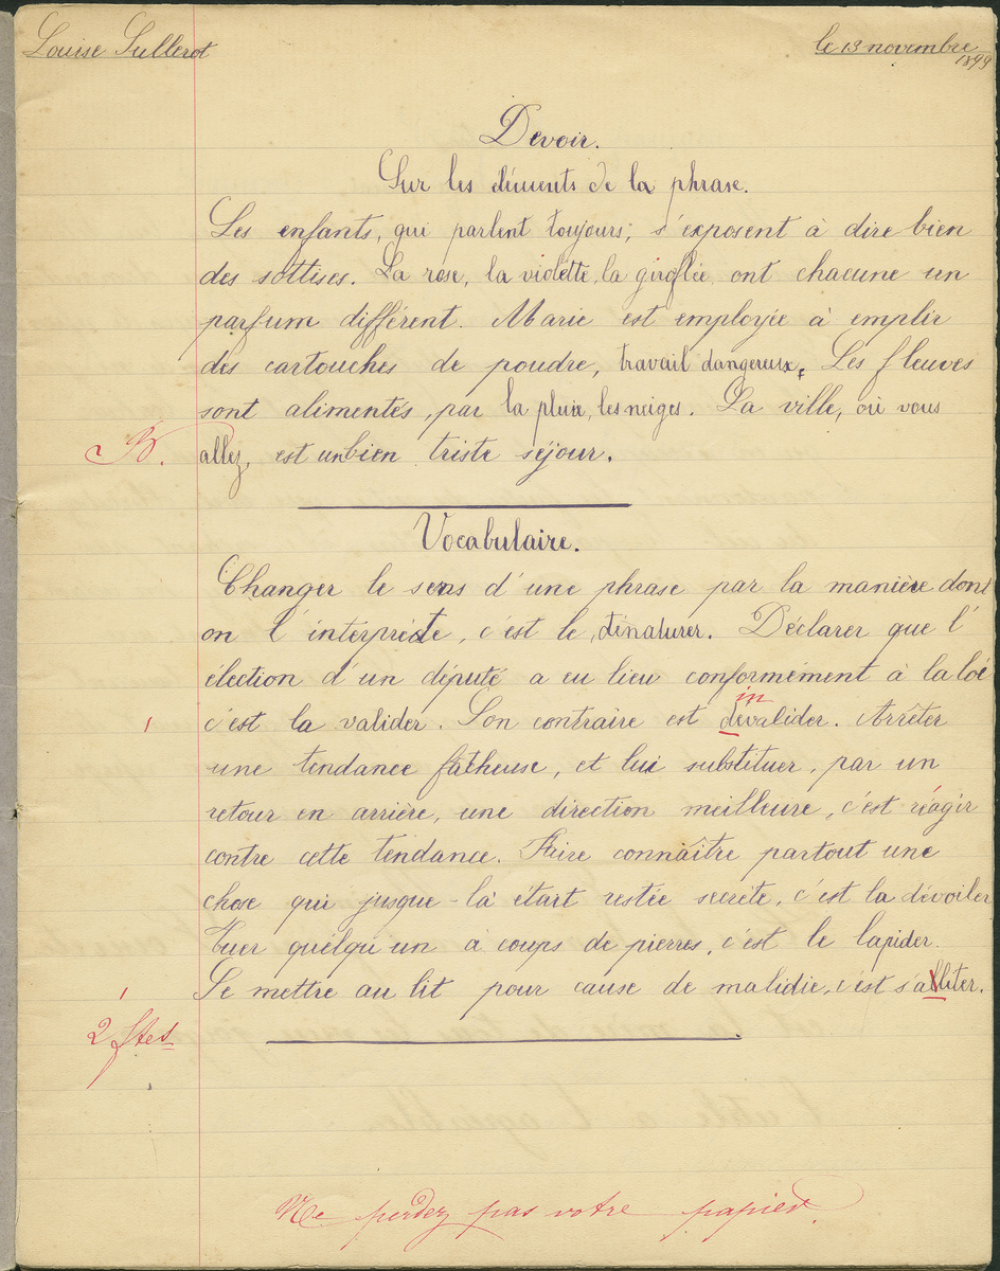 Louise Sullerot
le 13 novembre
1899
Devoir.
Sur les éléments de la phrase.
Les enfants, qui parlent toujours, s'exposent à dire bien
des sottises. La rose, la violette, la giroflée, ont chacune un
parfum différent. Marie est employée à emplir
des cartouches de poudre, travail dangereux. Les fleuves
sont alimentés, par la pluie, les neiges. La ville, où vous
B. allez, est un bien triste séjour.
Vocabulaire.
Changer le sens d'une phrase par la manière dont
on l'interprète, c'est le dénaturer. Déclarer que l'
élection d'un député a eu lieu conformément à la loi
in
1 c'est la valider. Son contraire est dévalider. Arrêter
une tendance fâcheuse, et lui substituer, par un
retour en arrière, une direction meilleure, c'est réagir
contre cette tendance. Faire connaître partout une
chose qui jusque-là était restée secrète, c'est la dévoiler
Tuer quelqu'un à coups de pierres, c'est le lapider.
1 Se mettre au lit pour cause de malidie, c'est s'alliter.
2 ftes
Ne perdez pas votre papier.